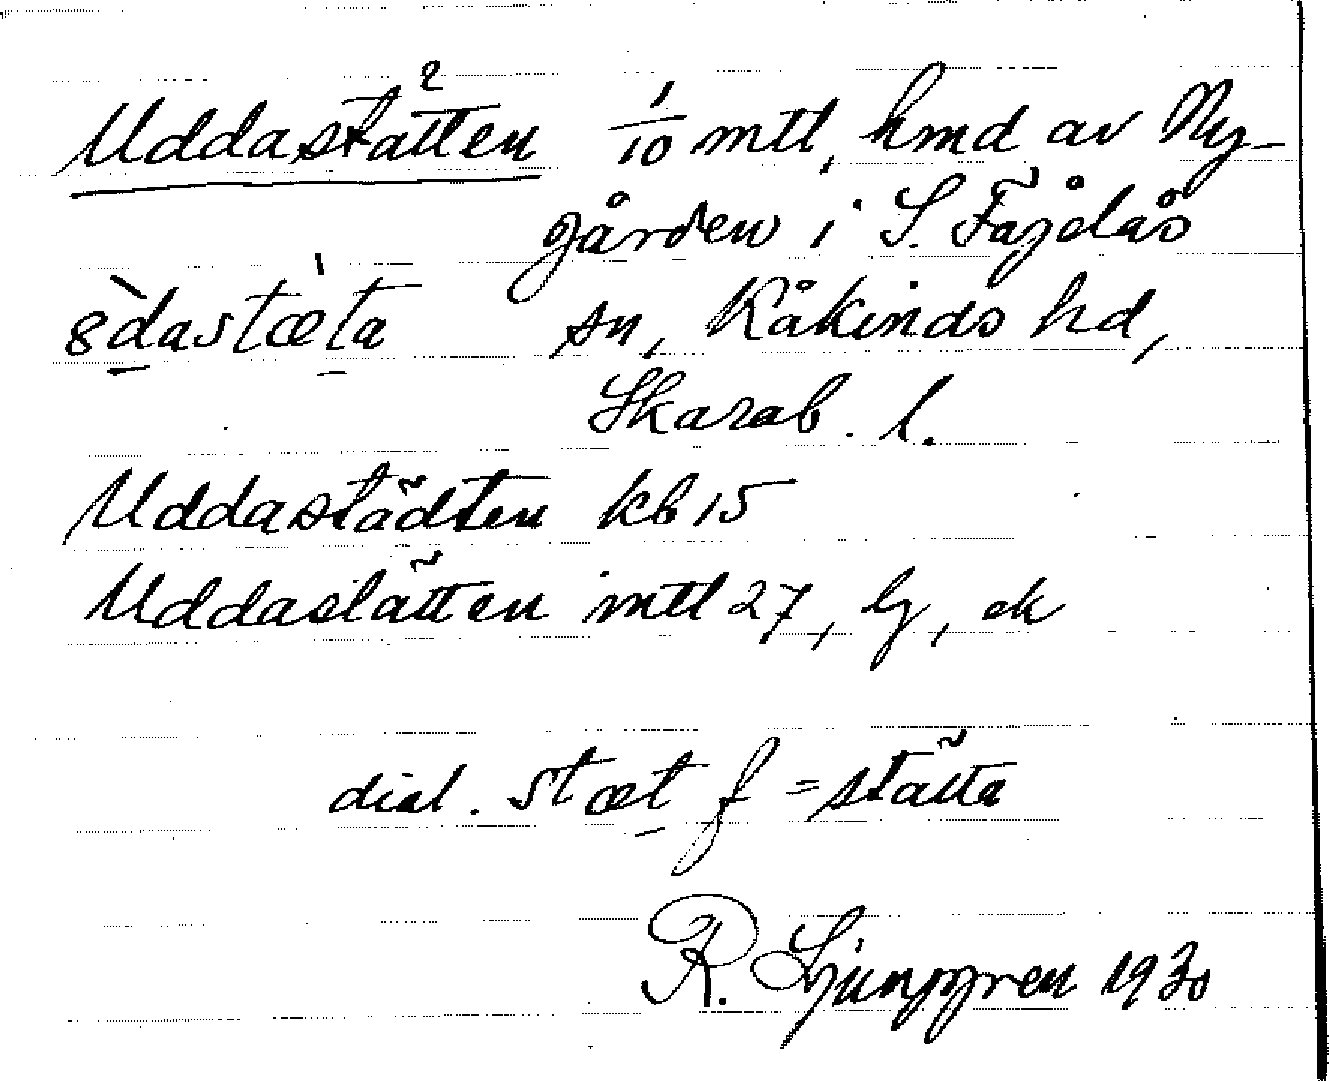 Uddastätten 1/10 mtl, hmd av Ny-
gården i S. Fågelås
sn, Kåkinds hd,
Skarab. l.
Uddastädten kb 15
Uddaslätten mtl 27, lg, ek
dial. stæt f = stätta
R. Ljunggren 1930